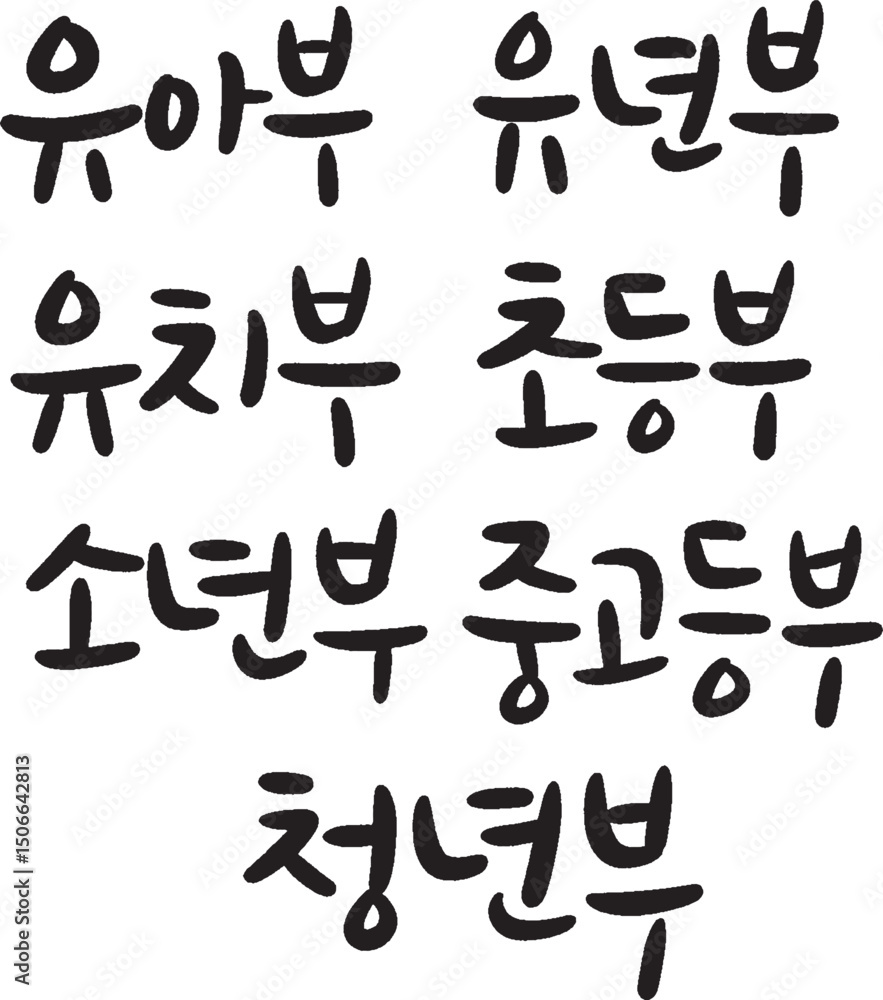 유아부 유년부
유치부 초등부
소년부 중고등부
청년부
Adobe Stock | #1506642813